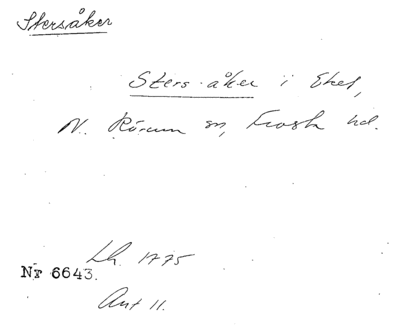 Stersåker
Sters-åker i Ekel,
N. Rörum sn, Frosta hd.
Lh. 1775
Nr 6643.
Ant 11.